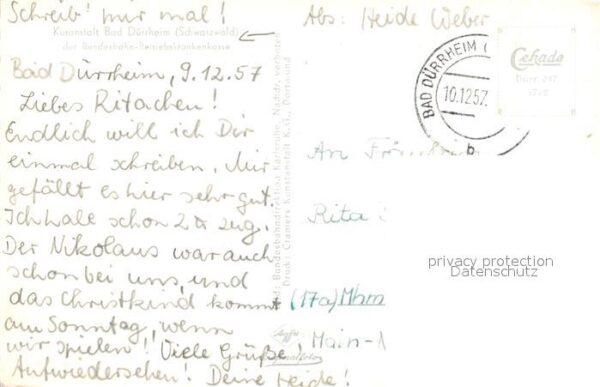 Schreib' mir mal!
Kuranstalt Bad Dürrheim (Schwarzwald)
der Bundesbahn-Betriebskrankenkasse
Bad Dürrheim, 9.12.57
Liebes Ritachen!
Endlich will ich Dir
einmal schreiben. Mir
gefällt es hier sehr gut.
Ich habe schon 2 zug.
Der Nikolaus war auch
schon bei uns, und
das Christkind kommt
am Sonntag, wenn
wir spielen! Viele Grüße!
Aufwiedersehen! Deine Heide!
Bundesbahndirektion Karlsruhe, Nachdr. verboten
Druck: Cramers Kunstanstalt K.G., Dortmund
Abs: Heide Weber
BAD DÜRRHEIM (
10.12.57.
b
Cekade
Dürr 247
An Fräulein
Rita
(17a) Mhm
Main-
privacy protection
Datenschutz